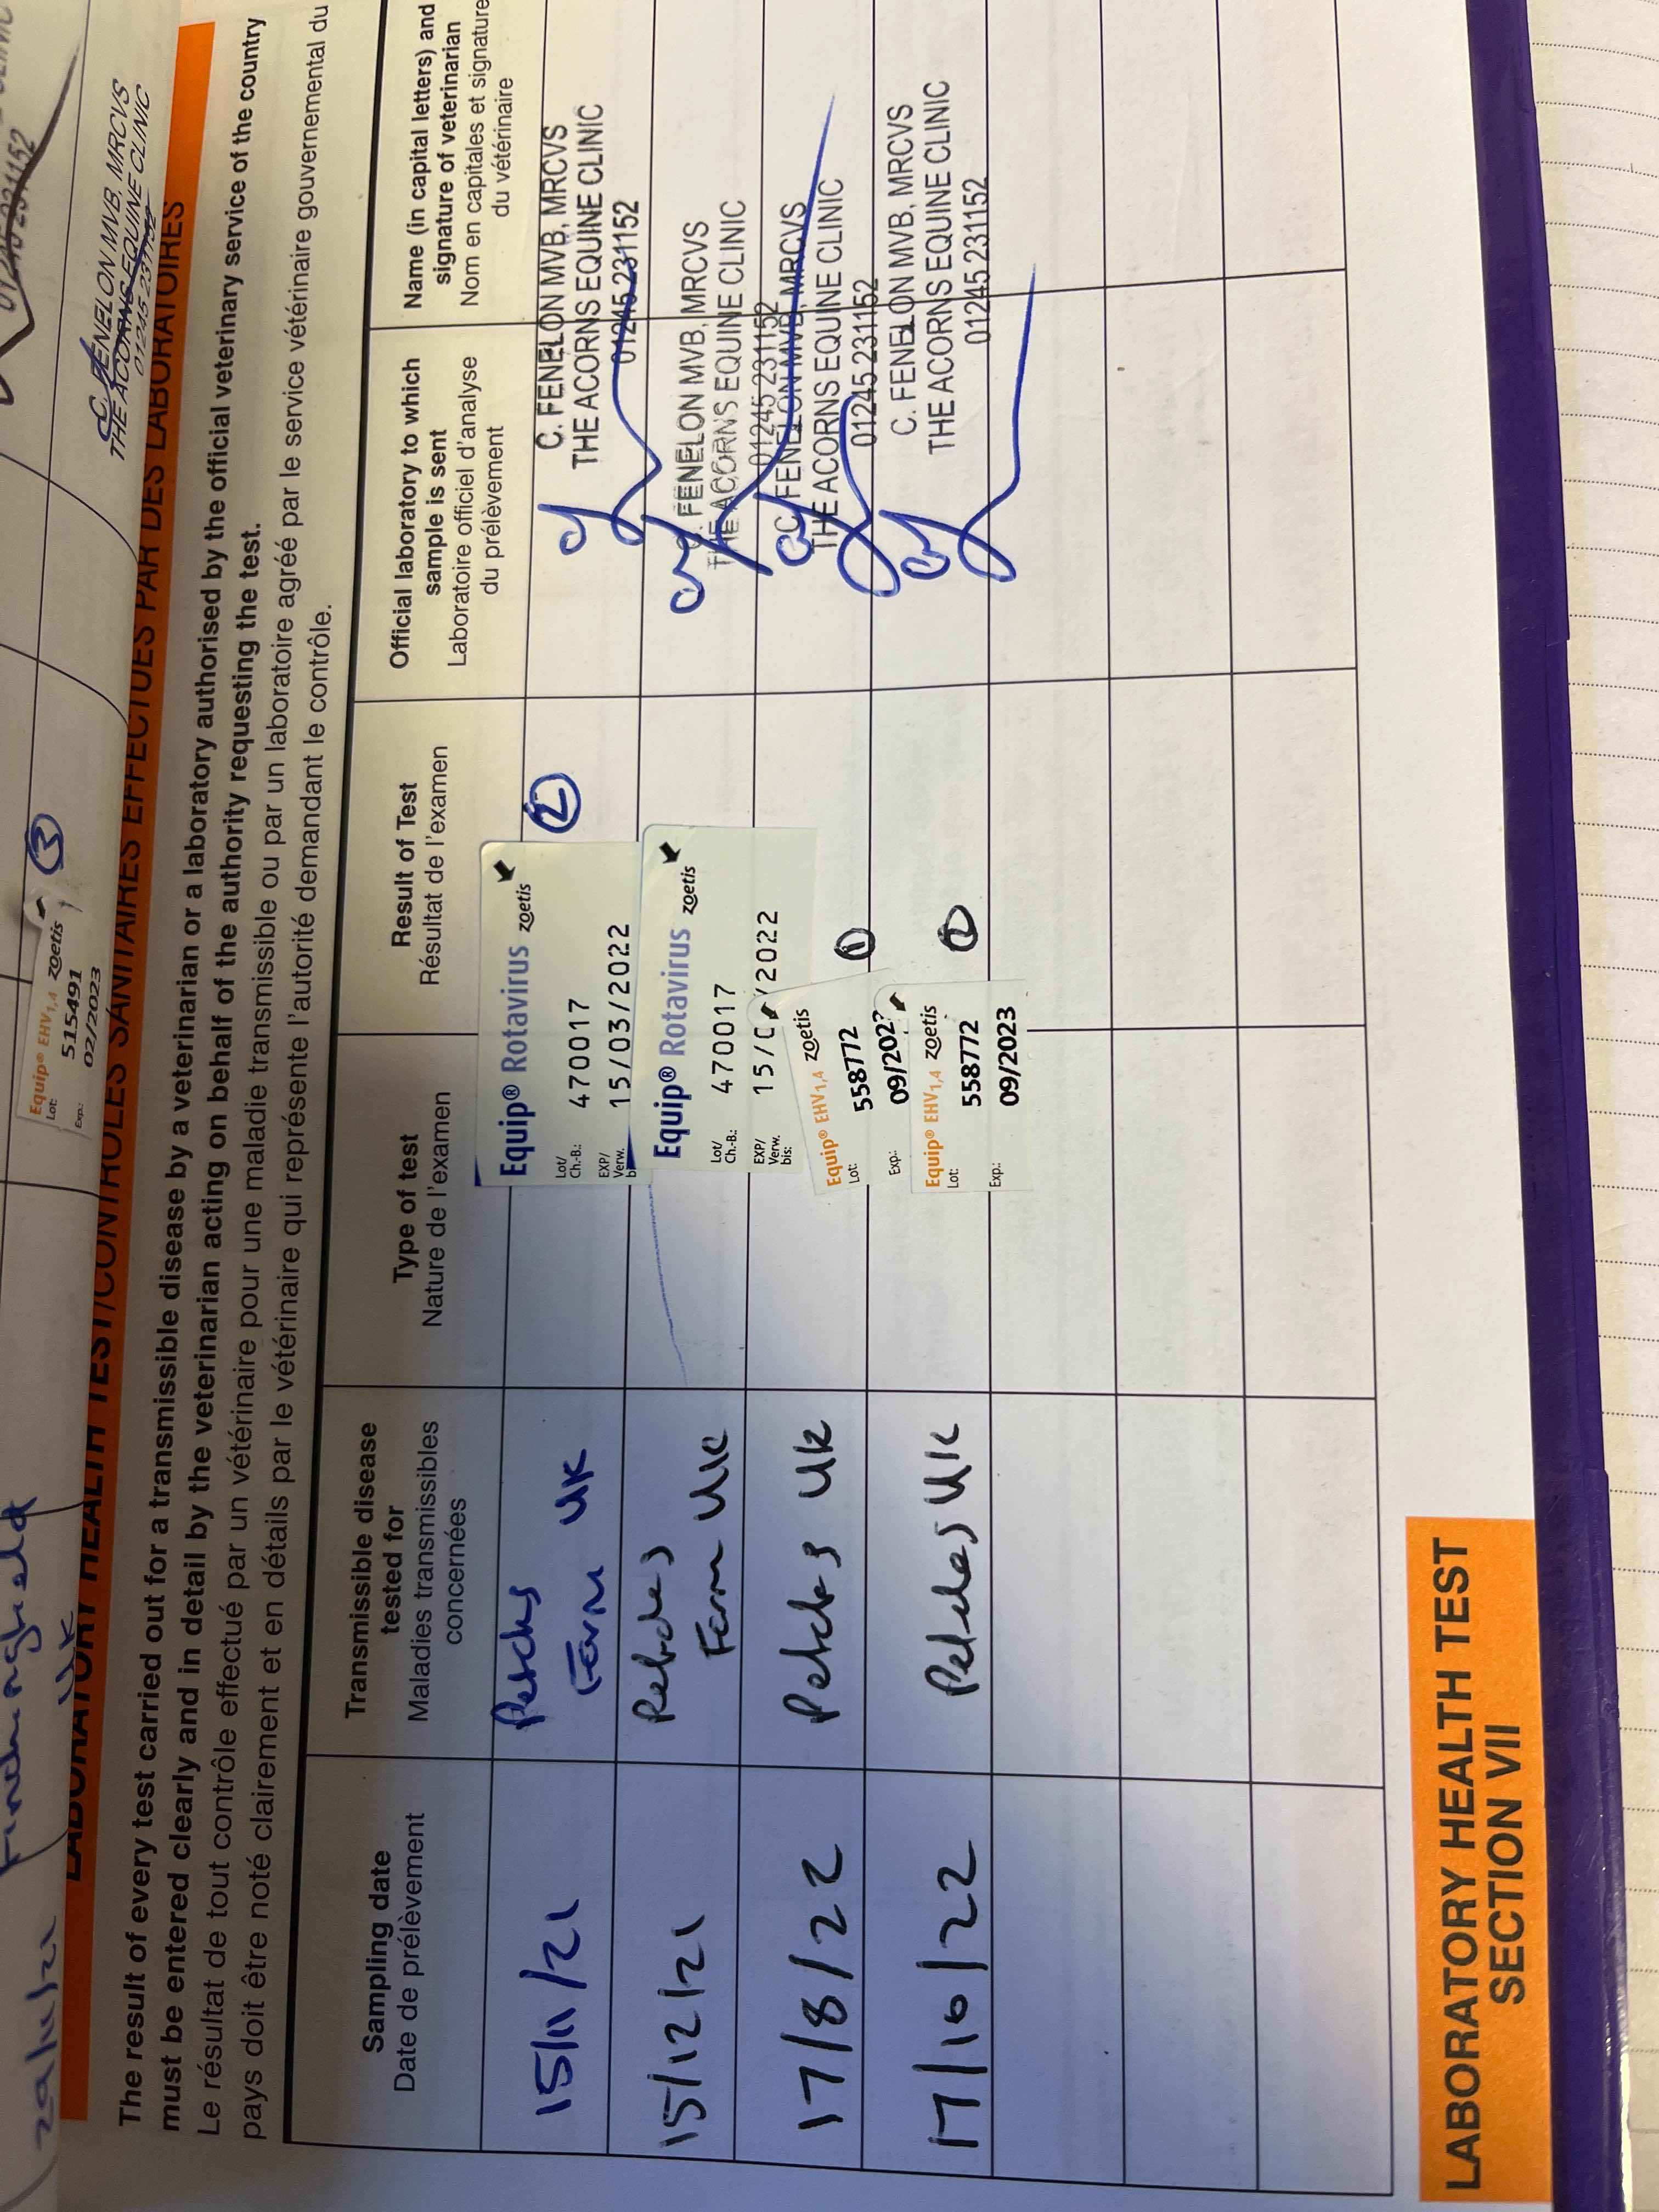 29/11/21
Finchingfield
UK
Equip® EHV1,4 zoetis
Lot: 515491
Exp.: 02/2023
3
01245 231152
C. FENELON MVB, MRCVS
THE ACORNS EQUINE CLINIC
01245 231152
LABORATORY HEALTH TEST/CONTRÔLES SANITAIRES EFFECTUÉS PAR DES LABORATOIRES
The result of every test carried out for a transmissible disease by a veterinarian or a laboratory authorised by the official veterinary service of the country
must be entered clearly and in detail by the veterinarian acting on behalf of the authority requesting the test.
Le résultat de tout contrôle effectué par un vétérinaire pour une maladie transmissible ou par un laboratoire agréé par le service vétérinaire gouvernemental du
pays doit être noté clairement et en détails par le vétérinaire qui représente l'autorité demandant le contrôle.
Sampling date
Date de prélèvement
Transmissible disease
tested for
Maladies transmissibles
concernées
Type of test
Nature de l'examen
Result of Test
Résultat de l'examen
Official laboratory to which
sample is sent
Laboratoire officiel d'analyse
du prélèvement
Name (in capital letters) and
signature of veterinarian
Nom en capitales et signature
du vétérinaire
15/11/21
Petches
Farm UK
Equip® Rotavirus zoetis
Lot/
Ch.-B.: 470017
EXP/
Verw. 15/03/2022
2
C. FENELON MVB, MRCVS
THE ACORNS EQUINE CLINIC
01245 231152
15/12/21
Petches
Farm UK
Equip® Rotavirus zoetis
Lot/
Ch.-B.: 470017
EXP/
Verw.
bis: 15/0 /2022
FENELON MVB, MRCVS
THE ACORNS EQUINE CLINIC
01245 231152
17/8/22
Petches UK
Equip® EHV1,4 zoetis
Lot: 558772
Exp.: 09/202
1
C. FENELON MVB, MRCVS
THE ACORNS EQUINE CLINIC
01245 231152
17/10/22
Petches UK
Equip® EHV1,4 zoetis
Lot: 558772
Exp.: 09/2023
C. FENELON MVB, MRCVS
THE ACORNS EQUINE CLINIC
01245 231152
LABORATORY HEALTH TEST
SECTION VII